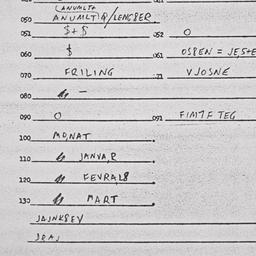 ANUMLTA
050 ANUMLTIA/LENGSER.
051 $+$ 052 0
060 $ 061 OSPEN = JESTE
070 FRILING 71 VJOSNE
080 -
090 0 091 FIMTF TEG
100 MONAT
110 JANVAR
120 FEVRAL8
130 MART
JAJNKSEV